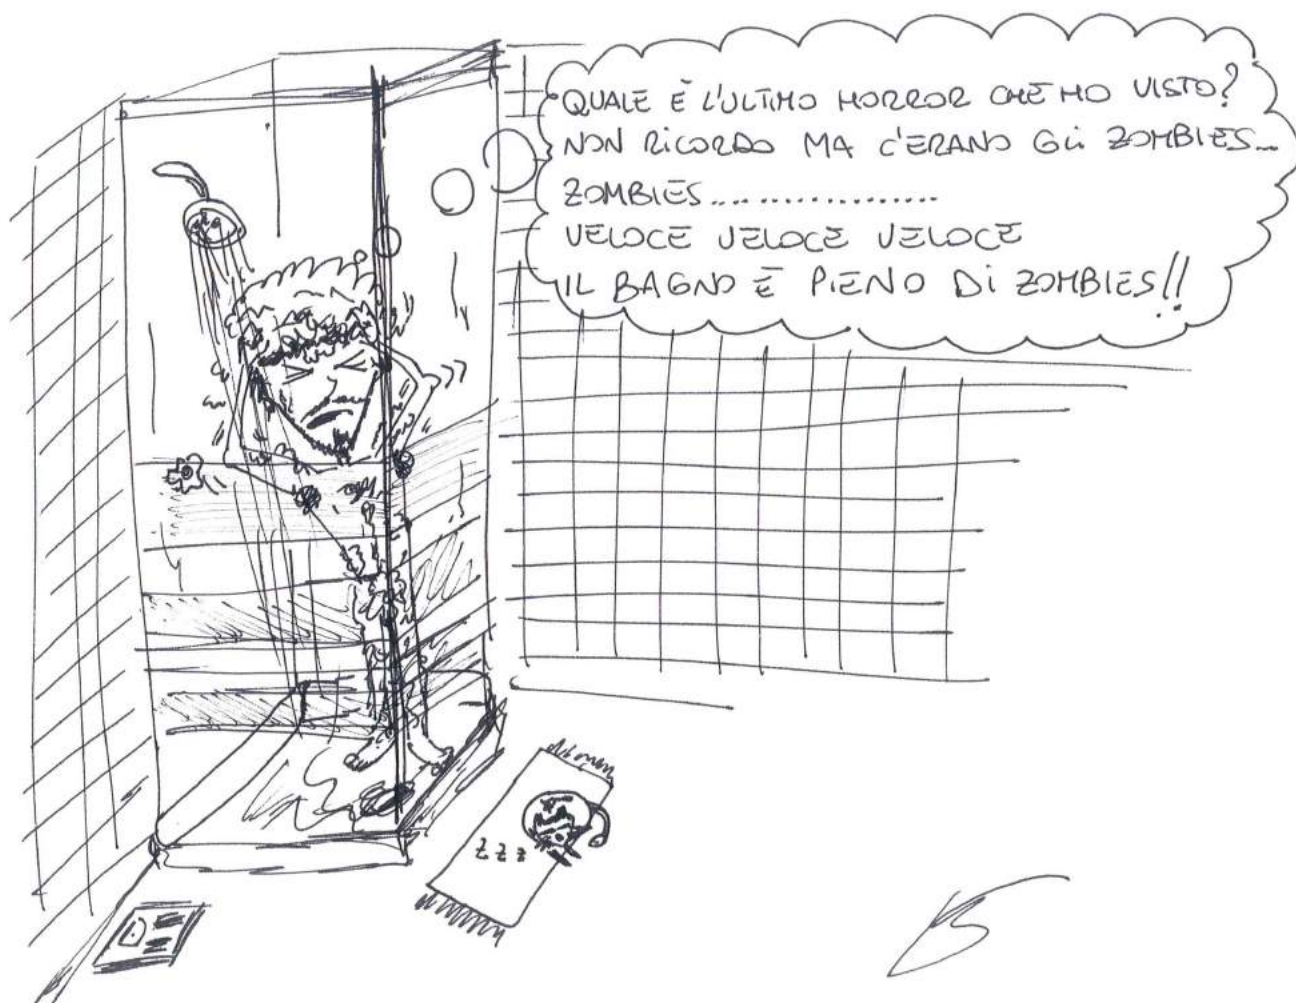 QUALE È L'ULTIMO HORROR CHE HO VISTO?
NON RICORDO MA C'ERANO GLI ZOMBIES...
ZOMBIES..................
VELOCE VELOCE VELOCE
IL BAGNO È PIENO DI ZOMBIES!!
Z Z Z